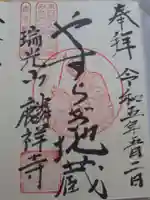 奉拝
令和五年五月二日
やすらぎ地蔵
瑞光山
麟祥寺